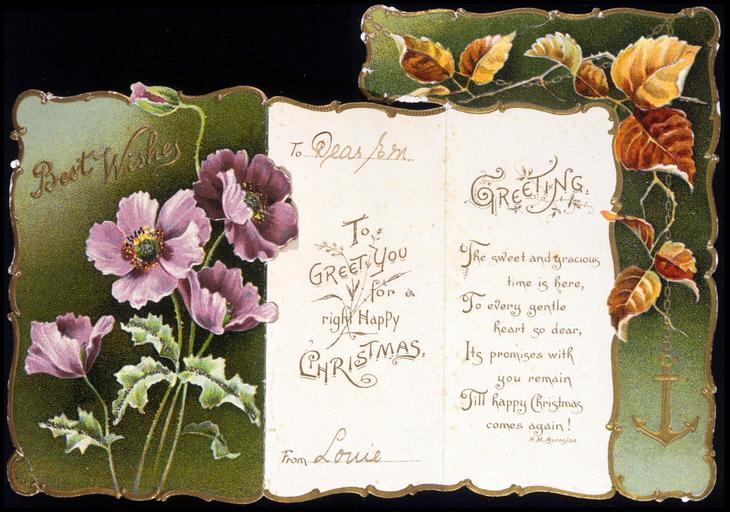 Best Wishes
To Dear
To
GREET YOU
for a
right Happy
CHRISTMAS.
From Louie
GREETING.
The sweet and gracious
time is here,
To every gentle
heart so dear,
Its promises with
you remain
Till happy Christmas
comes again!
H.M. Burnside